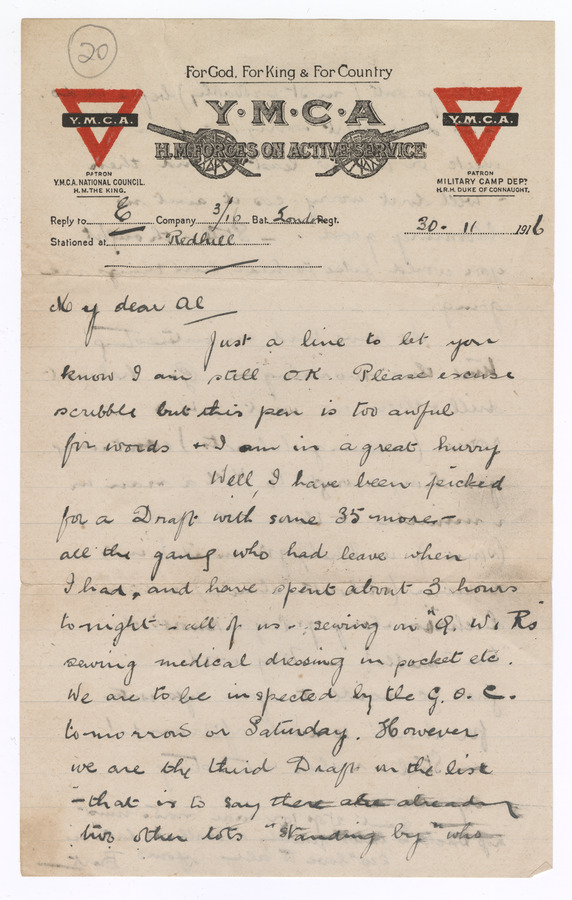 20
For God, For King & For Country
Y·M·C·A
H.M. FORCES ON ACTIVE SERVICE
Y.M.C.A.
Y.M.C.A.
PATRON
Y.M.C.A. NATIONAL COUNCIL.
H.M. THE KING.
PATRON
MILITARY CAMP DEPT
H.R.H. DUKE OF CONNAUGHT.
Reply to E Company 3/10 Bat. London Regt.
30. 11 1916
Stationed at Redhill
My dear Al
Just a line to let you
know I am still OK. Please excuse
scribble but this pen is too awful
for words & I am in a great hurry
Well, I have been picked
for a Draft with some 35 more –
all the gang who had leave when
I had, and have spent about 3 hours
to-night – all of us – sewing on "Q. W. Rs"
sewing medical dressing in pocket etc.
We are to be inspected by the G.O.C.
tomorrow or Saturday. However
we are the third Draft on the list
– that is to say there are already
two other lots "standing by" who